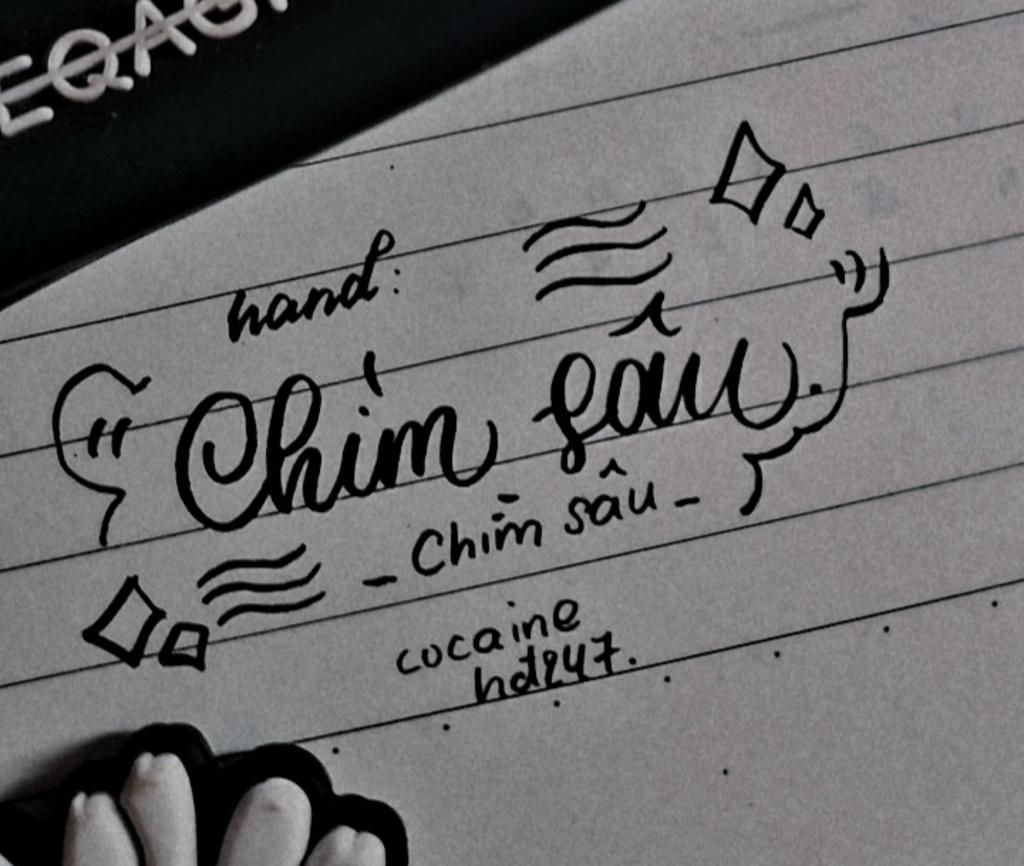 EQAG
hand:
" Chìm sâu. "
- Chìm sâu -
cocaine
hd247.